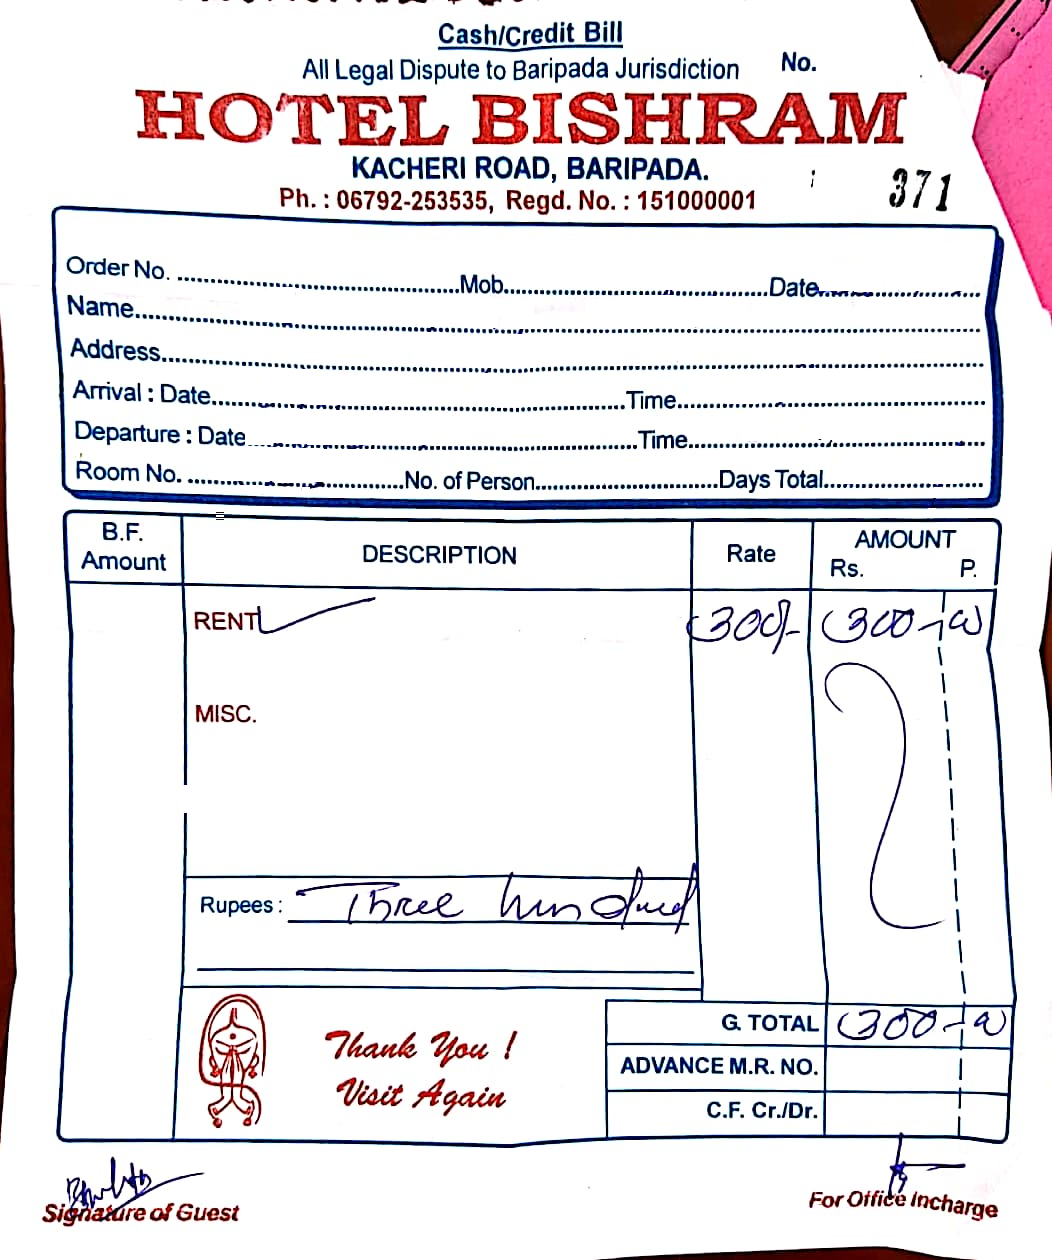 Cash/Credit Bill
All Legal Dispute to Baripada Jurisdiction No.
HOTEL BISHRAM
KACHERI ROAD, BARIPADA.
Ph. : 06792-253535, Regd. No. : 151000001
371
Order No. ........ Mob........ Date........
Name........
Address........
Arrival : Date........ Time........
Departure : Date........ Time........
Room No. ........ No. of Person........ Days Total........
B.F. Amount DESCRIPTION Rate AMOUNT Rs. P.
RENT 300/- 300-00
MISC.
Rupees : Three hundred
G. TOTAL 300-00
Thank You !
Visit Again
ADVANCE M.R. NO.
C.F. Cr./Dr.
Signature of Guest
For Office Incharge